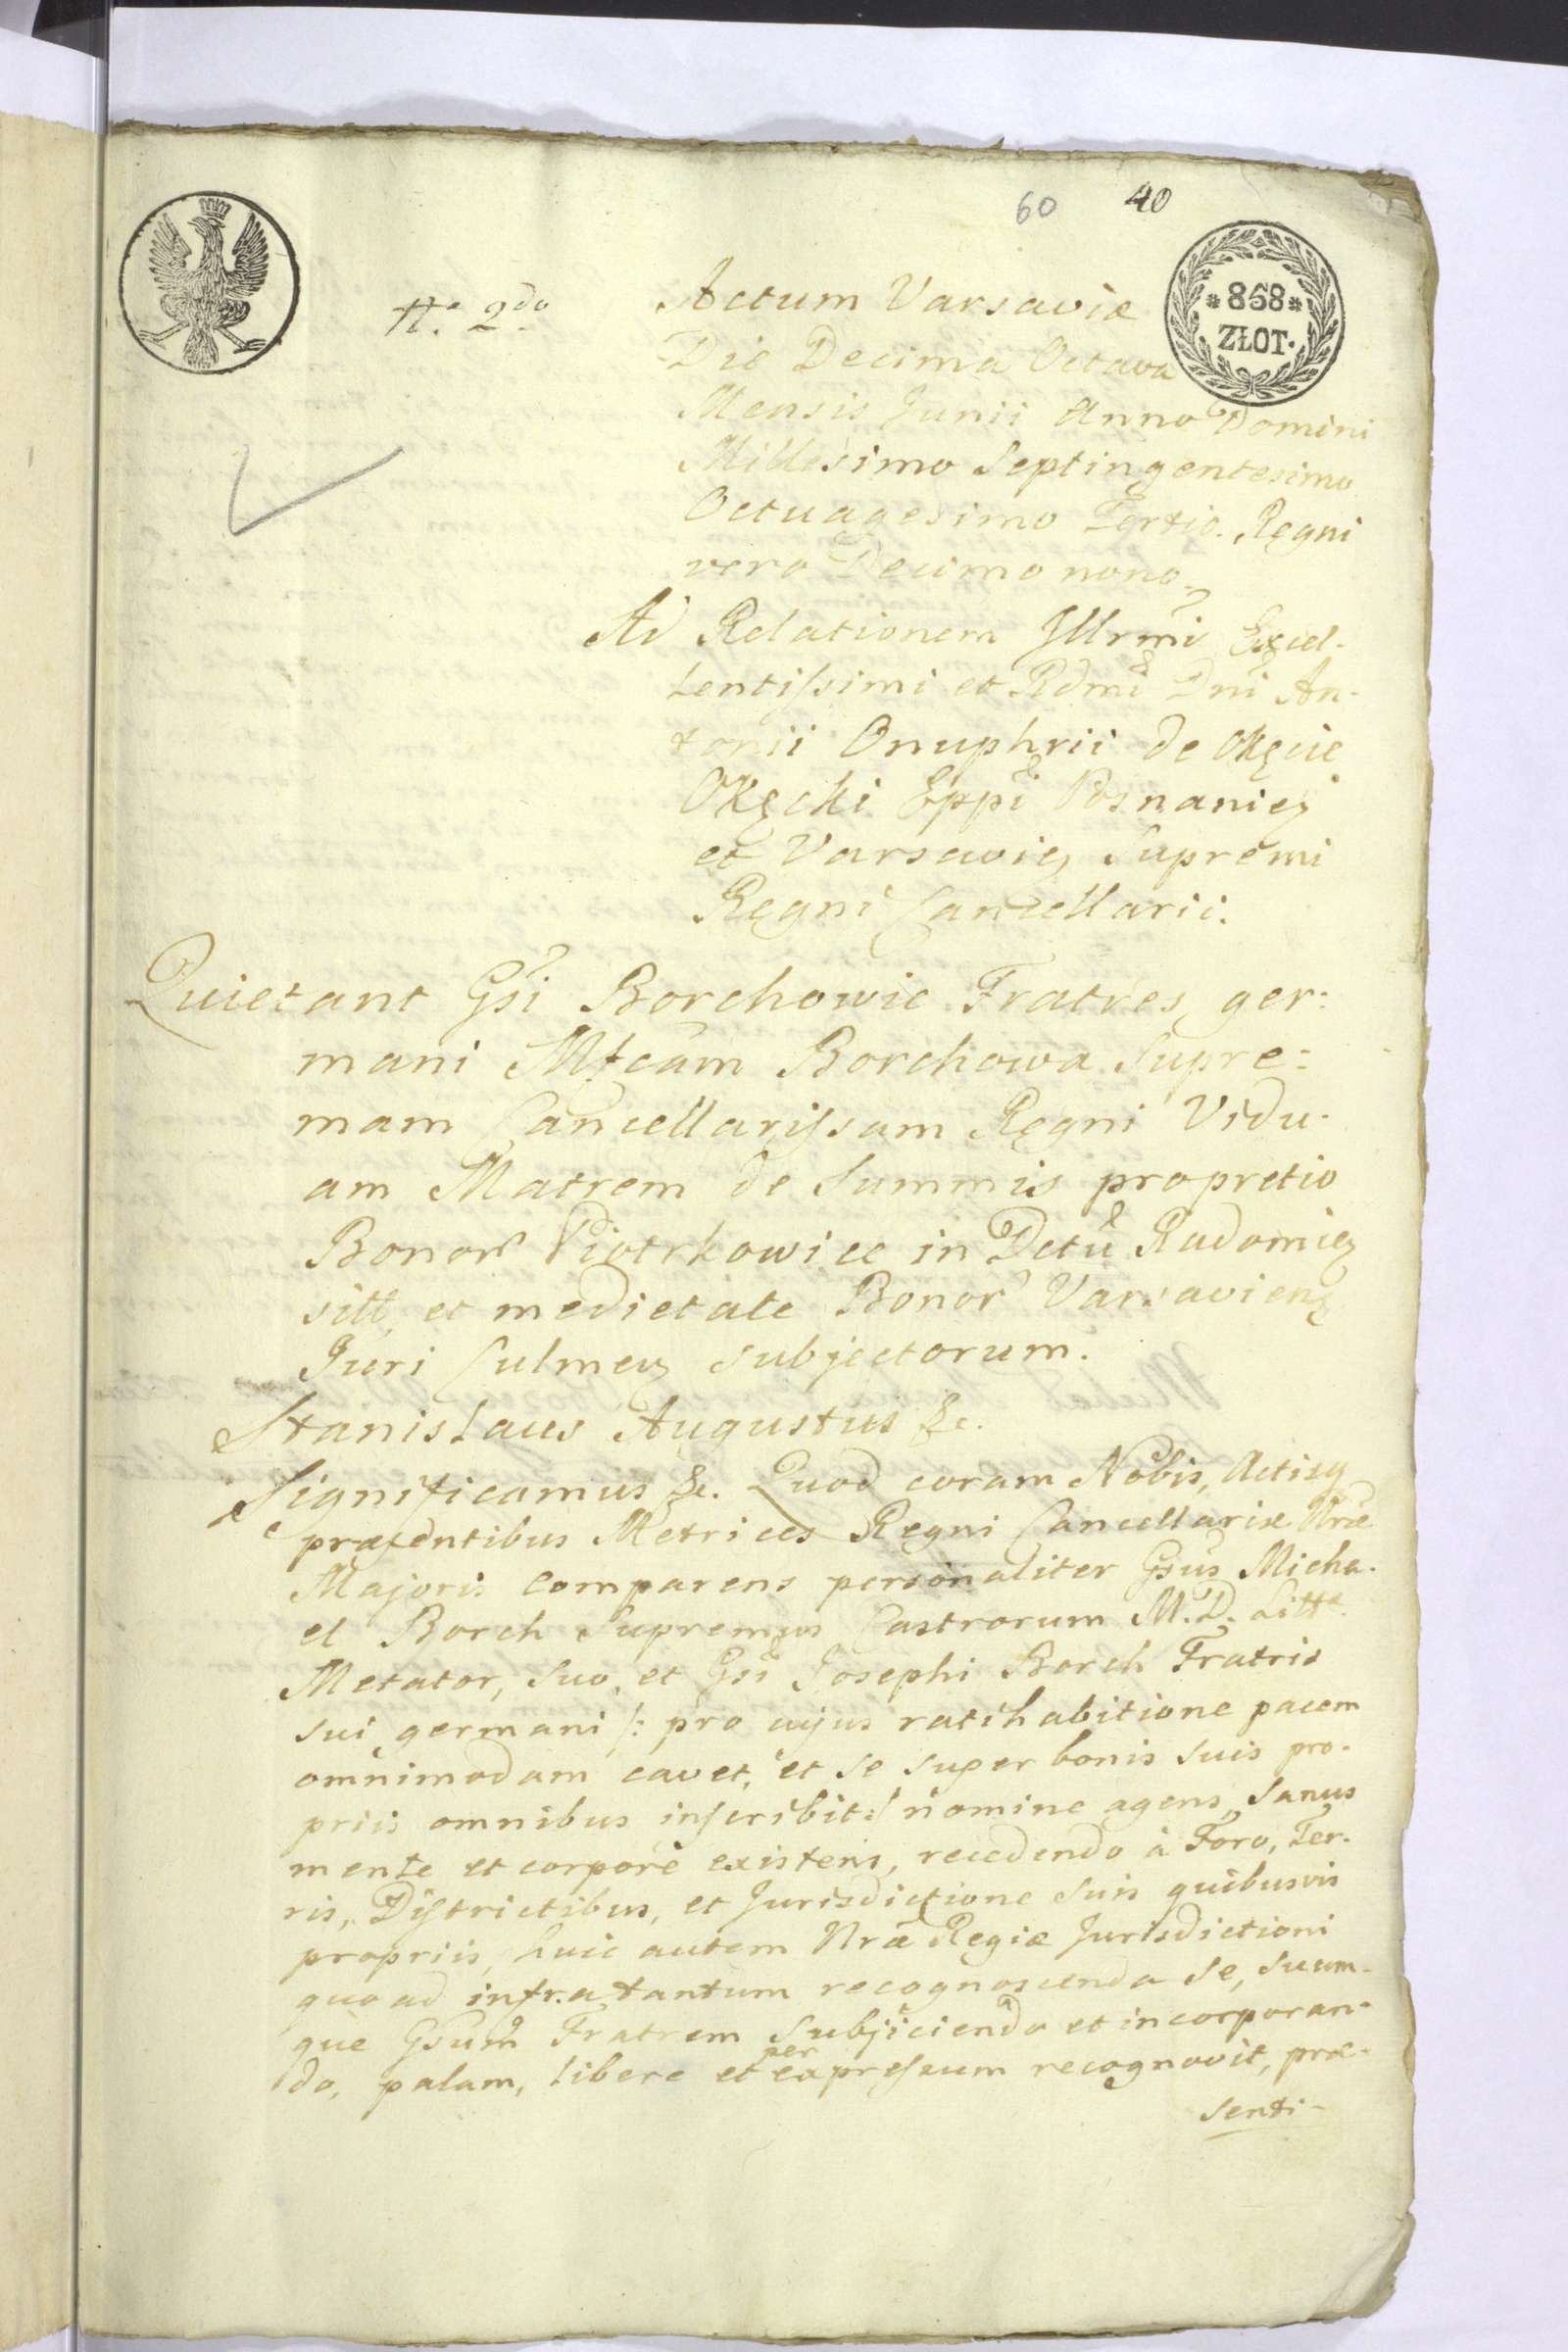 60 40
*868*
ZŁOT.
N.º 2do
Actum Varsaviæ
Die Decima Octava
Mensis Junii Anno Domini
Millesimo Septingentesimo
Octuagesimo Tertio. Regni
vero Decimo nono.
Ad Relationem Illrmi Excel-
lentissimi et Rdmi Dni An-
tonii Onuphrii de Okęcie
Okęcki Eppi Posnanieȝ
et Varsavieȝ Supremi
Regni Cancellarii.
Quietant Gsi Borchowie Fratres ger:
mani Mfcam Borchowa Supre:
mam Cancellarissam Regni Vidu-
am Matrem de Summis propretio
Bonor Piotrkowice in Dctu Radomieȝ
sitt, et medietate Bonor Varsavienȝ
Juri Culmeȝ subjectorum.
Stanislaus Augustus &c.
Significamus &c. Quod coram Nobis, Actisq
præsentibus Metrices Regni Cancellariæ Nræ
Majoris comparens personaliter Gsus Micha-
el Borch Supremus Castrorum M. D. Litt.
Metator, suo, et Gsi Josephi Borch Fratris
sui germani /: pro cujus ratihabitione pacem
omnimodam cavet, et se super bonis suis pro-
priis omnibus inscribit :/ nomine agens, sanus
mente et corpore existens, recedendo à Foro, Ter-
ris, Districtibus, et Jurisdictione suis quibusvis
propriis, huic autem Nræ Regiæ Jurisdictioni
quo ad infra tantum recognoscenda se, suum-
que Gsum Fratrem subjiciendo et incorporan-
do, palam, libere et per expressum recognovit, præ-
senti-